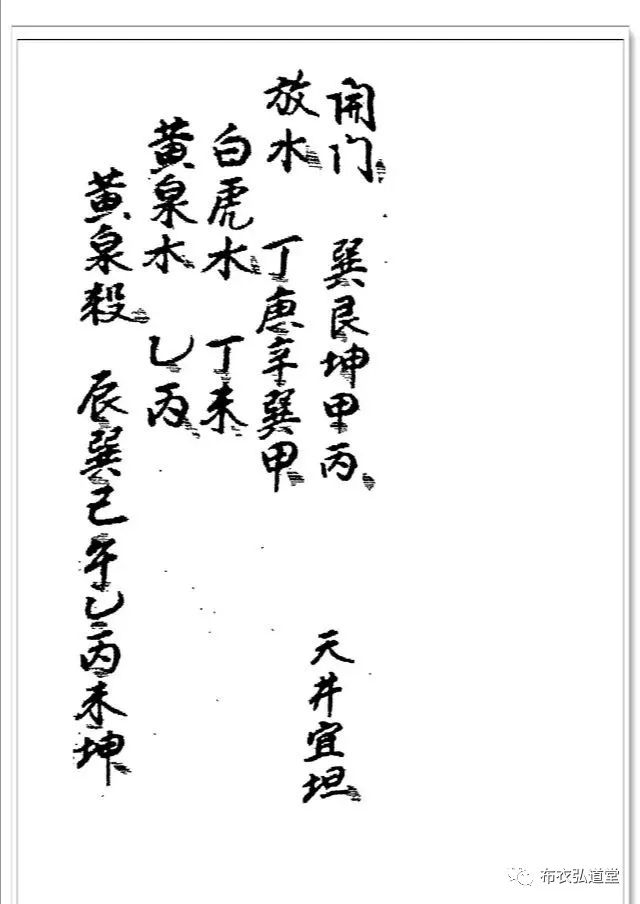 開门 巽艮坤甲丙 天井宜坦
放水 丁庚辛巽甲
白虎水 丁未
黄泉水 乙丙
黄泉殺 辰巽己午乙丙未坤
布衣弘道堂